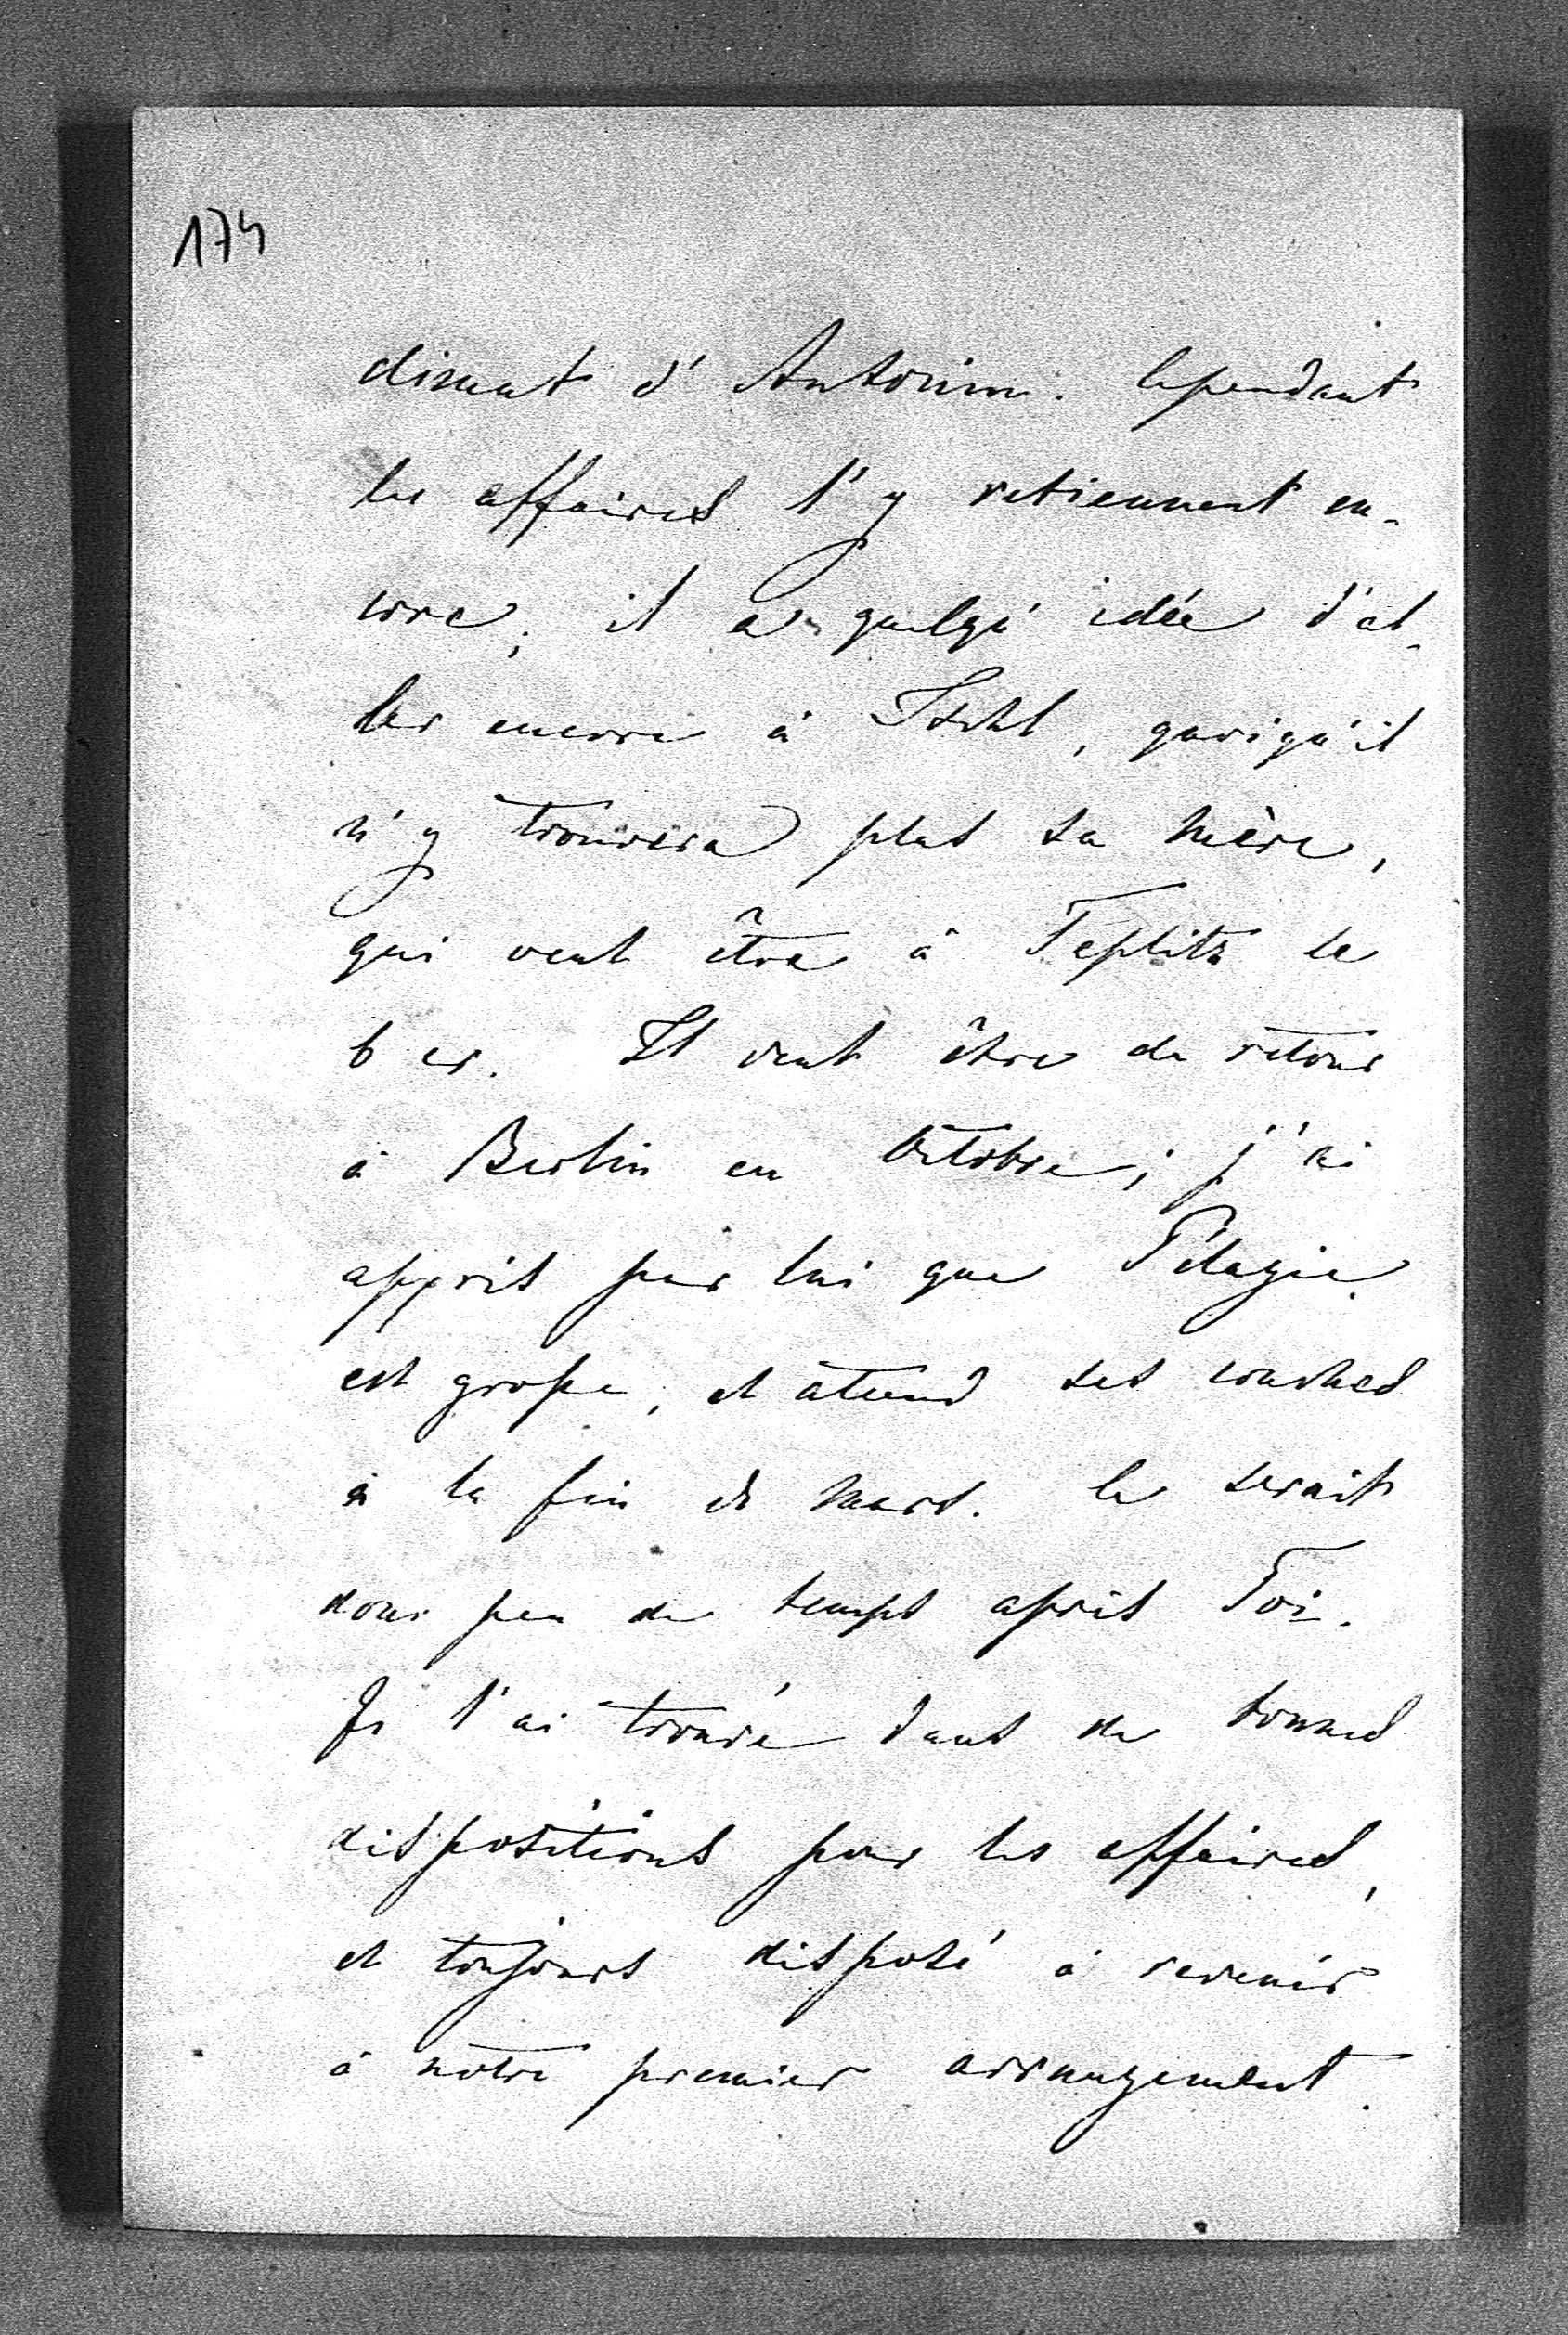 174
climat d'Antonin. Cependant
les affaires l'y retiennent en-
core; il a quelqu' idée d'al-
ler encore à Ischl, quoiqu'il
n'y trouvera plus sa mère,
qui veut être à Teplitz le
6 cr. Il veut être de retour
à Berlin en Octobre; j'ai
appris par lui que Pelagie
est grosse, et attend ses couches
à la fin de Mars. Ce serait
donc peu de temps après Toi.
Je l'ai trouvé dans de bonnes
dispositions pour les affaires,
et toujours disposé à revenir
à notre premier arrangement.